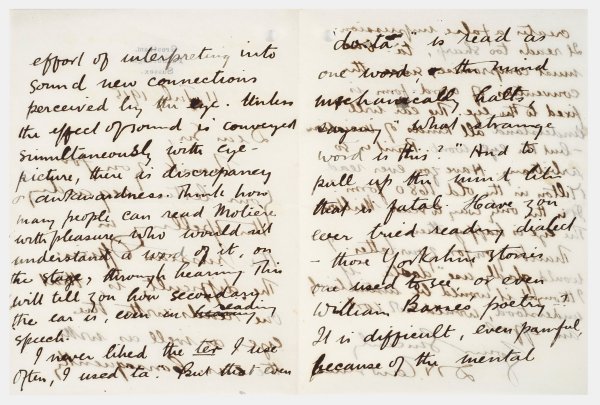 effort of interpreting into
sound new connections
perceived by the eye. Unless
the effect of sound is conveyed
simultaneously with eye-
picture, there is discrepancy
& awkwardness. Think how
many people can read Molière
with pleasure, who would not
understand a word of it, on
the stage, through hearing. This
will tell you how secondary
the ear is, even in reading
speech.
I never liked the ter I use
often, I used ta. But that even
is read as
one word & the mind
mechanically halts,
says "What strange
word is this?" And to
pull up the mind like
that is fatal. Have you
ever tried reading dialect
- those Yorkshire stories
one used to see, or even
William Barnes poetry?
It is difficult, even painful,
because of the mental